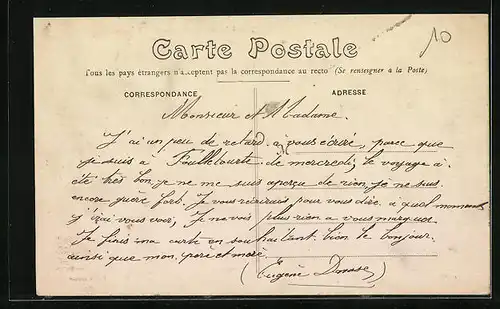 10
Carte Postale
Tous les pays étrangers n'acceptent pas la correspondance au recto (Se renseigner à la Poste)
CORRESPONDANCE ADRESSE
Monsieur et Madame.
J'ai un peu de retard à vous écrire, parce que
je suis à de mercredi, le voyage a
été très bon, je ne me suis aperçu de rien, je ne suis
encore guère fort. Je vous écrirais pour vous dire a quel moment
j'irai vous voir, Je ne vois plus rien a vous marquer
Je finis ma carte en souhaitant bien le bonjour
ainsi que mon père et mère
(Eugène